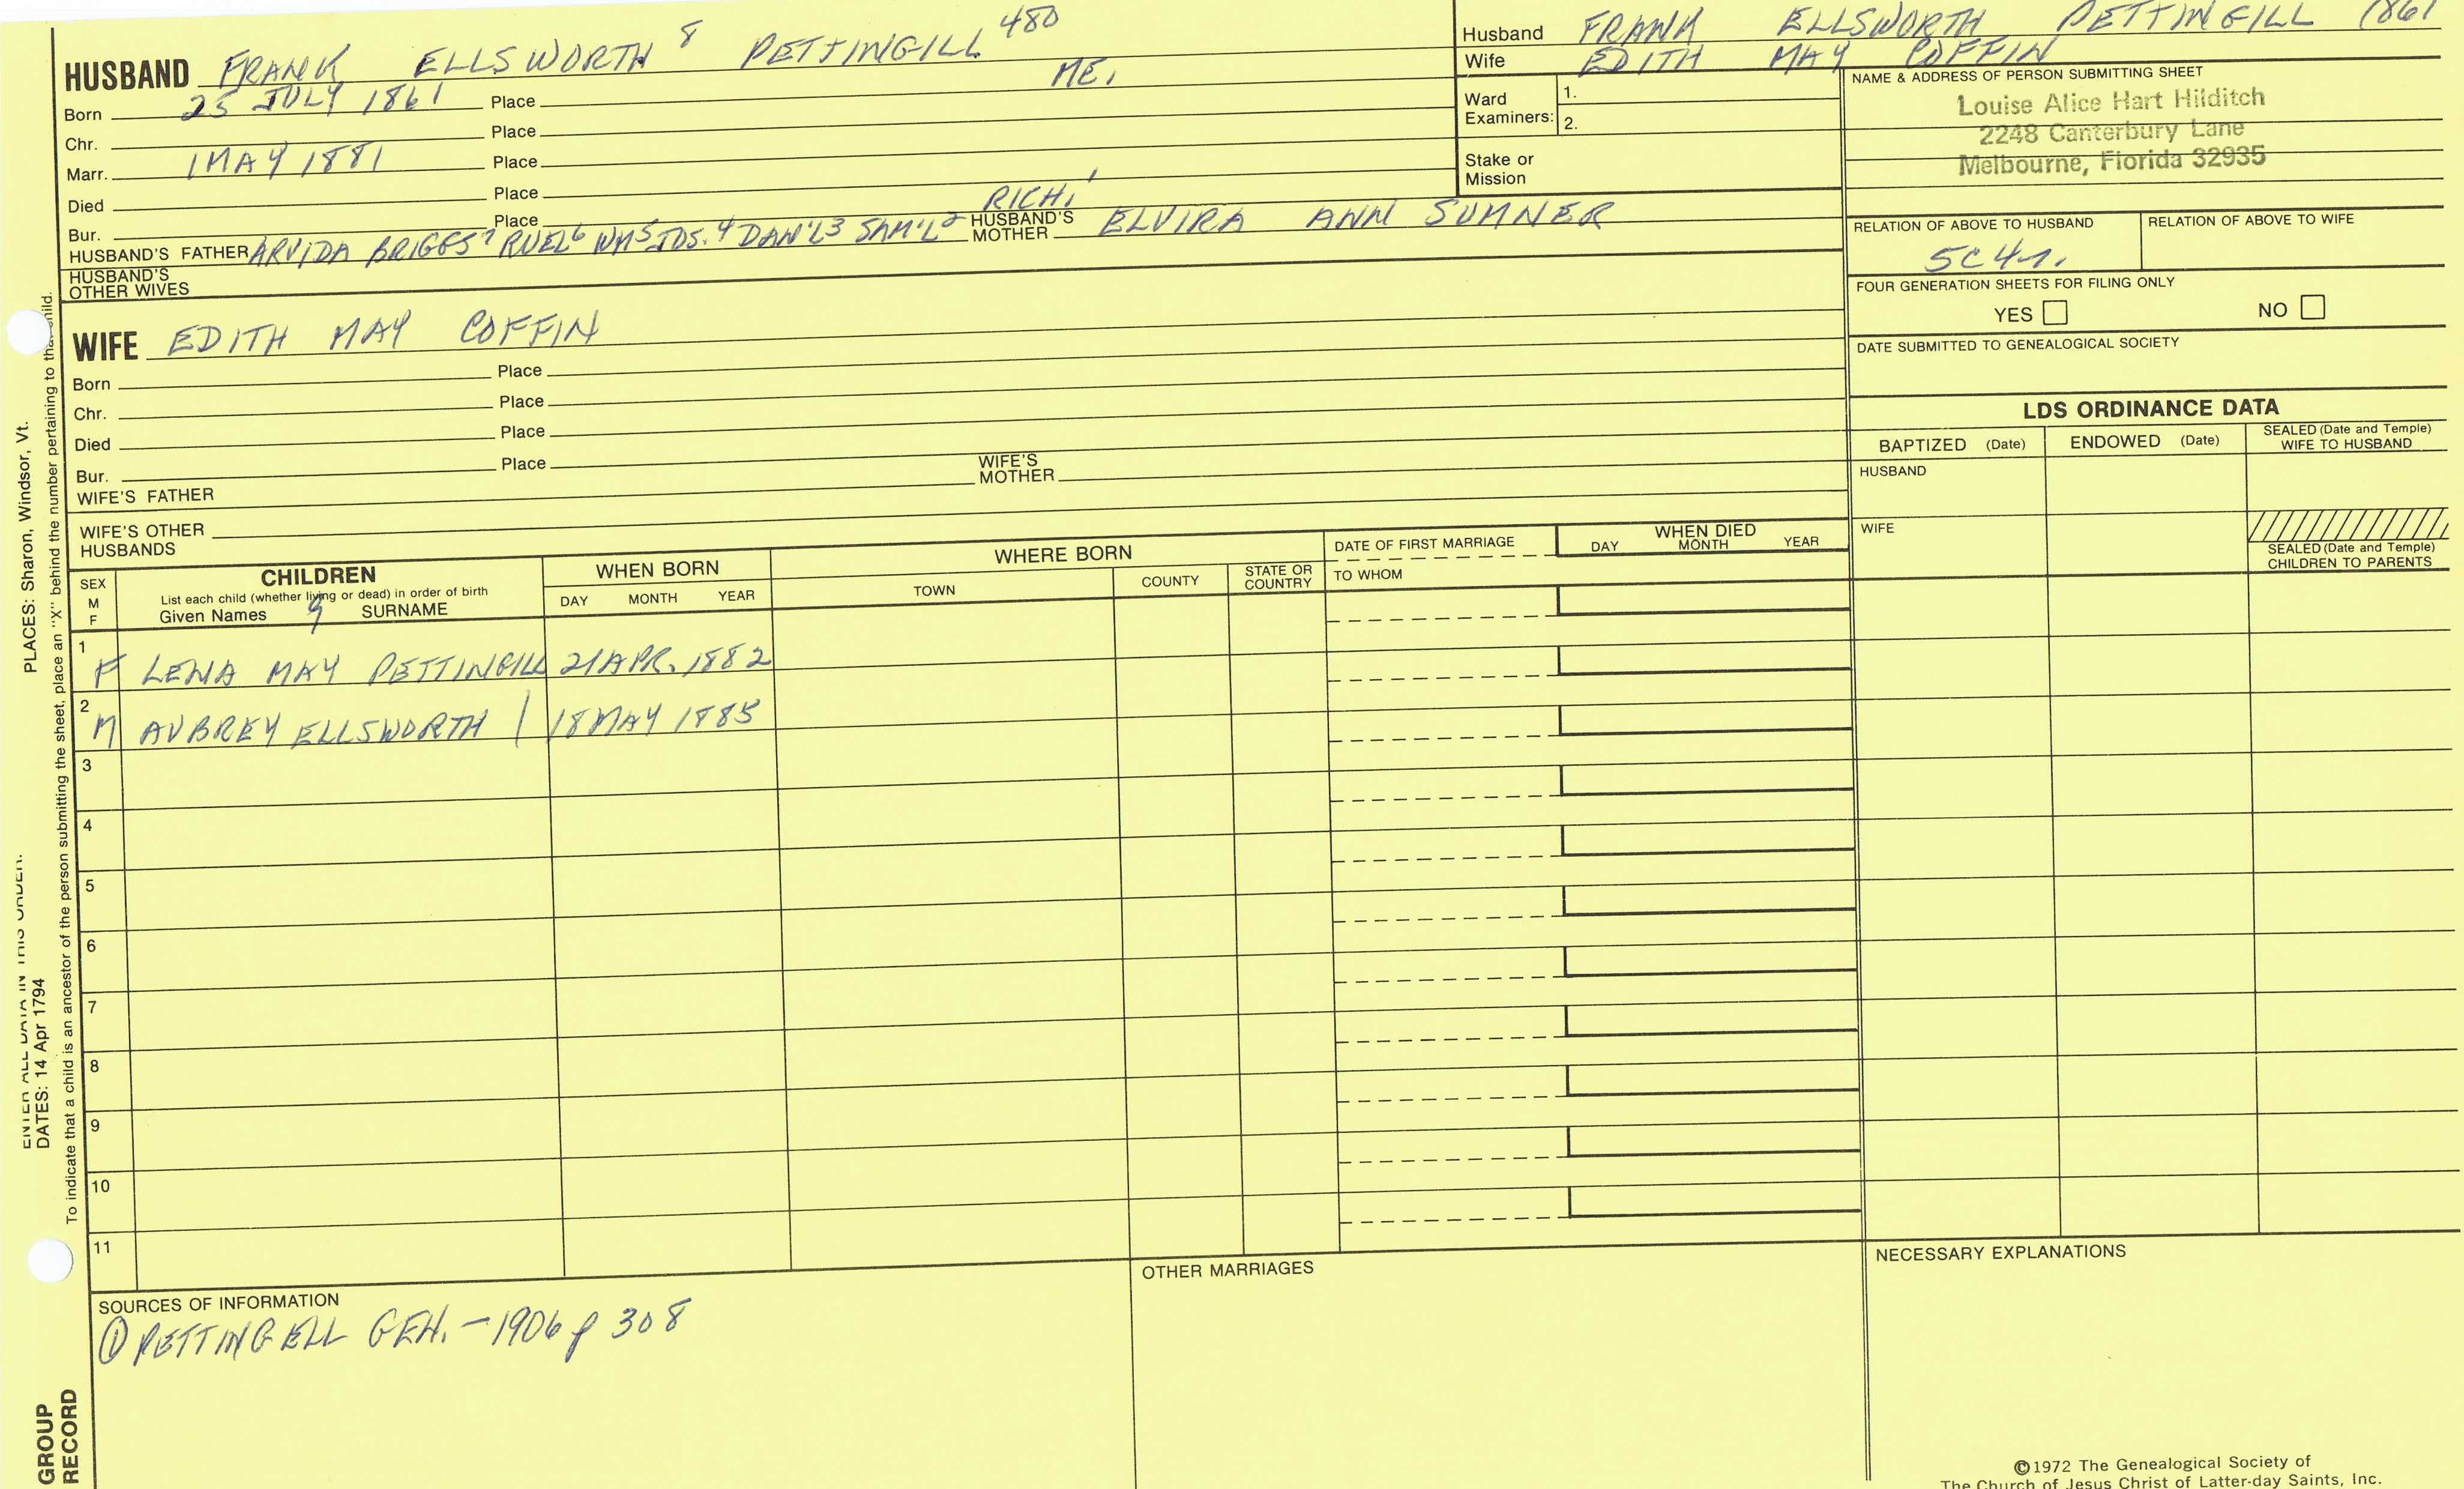 HUSBAND FRANK ELLSWORTH 8 PETTINGILL 480
Born 25 JULY 1861 Place ME.
Chr. Place
Marr. 1 MAY 1881 Place
Died Place
Bur. Place
HUSBAND'S FATHER ARVIDA BRIGGS 7 RUEL 6 WM 5 JOS. 4 DAN'L 3 SAM'L 2 RICH. 1 HUSBAND'S MOTHER ELVIRA ANN SUMNER
HUSBAND'S OTHER WIVES
WIFE EDITH MAY COFFIN
Born Place
Chr. Place
Died Place
Bur. Place
WIFE'S FATHER WIFE'S MOTHER
WIFE'S OTHER HUSBANDS
Husband FRANK ELLSWORTH PETTINGILL 1861
Wife EDITH MAY COFFIN
Ward Examiners: 1.
2.
Stake or Mission
NAME & ADDRESS OF PERSON SUBMITTING SHEET
Louise Alice Hart Hilditch
2248 Canterbury Lane
Melbourne, Florida 32935
RELATION OF ABOVE TO HUSBAND RELATION OF ABOVE TO WIFE
5C4r.
FOUR GENERATION SHEETS FOR FILING ONLY
YES NO
DATE SUBMITTED TO GENEALOGICAL SOCIETY
LDS ORDINANCE DATA
BAPTIZED (Date) ENDOWED (Date) SEALED (Date and Temple) WIFE TO HUSBAND
HUSBAND
WIFE
SEALED (Date and Temple) CHILDREN TO PARENTS
SEX M F
CHILDREN
List each child (whether living or dead) in order of birth
Given Names 9 SURNAME
WHEN BORN
DAY MONTH YEAR
WHERE BORN
TOWN COUNTY STATE OR COUNTRY
DATE OF FIRST MARRIAGE
TO WHOM
WHEN DIED
DAY MONTH YEAR
1 F LENA MAY PETTINGILL 21 APR. 1882
2 M AUBREY ELLSWORTH | 18 MAY 1885
3
4
5
6
7
8
9
10
11
SOURCES OF INFORMATION
① PETTINGELL GEN. - 1906 p 308
OTHER MARRIAGES
NECESSARY EXPLANATIONS
©1972 The Genealogical Society of
The Church of Jesus Christ of Latter-day Saints, Inc.
PLACES: Sharon, Windsor, Vt.
ENTER ALL DATA IN THIS ORDER:
DATES: 14 Apr 1794
To indicate that a child is an ancestor of the person submitting the sheet, place an "X" behind the number pertaining to that child.
GROUP
RECORD